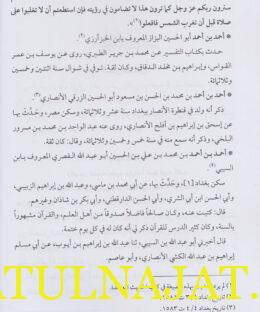 سترون ربكم عز وجل كما ترون هذا لا تضامون في رؤيته فإن استطعتم أن لا تغلبوا على
صلاة قبل أن تغرب الشمس فافعلوا
* أحمد بن أحمد أبو الحسين البزاز المعروف بابن الخبزأرزي
حدث بكتاب التفسير عن محمد بن جرير الطبري، روى عنه يوسف بن عمر
القواس، وإبراهيم بن مخلد الدقاق، وكان ثقة. توفي في شوال سنة اثنتين وخمسين
وثلاثمائة.
* أحمد بن أحمد بن محمد بن الحسن بن مسعود أبو الحسين الزرقي الأنصاري
ذكر أنه ولد في قنطرة الأنصار ببغداد سنة عشر وثلاثمائة، وسكن مصر، وحدث بها
عن إسحق بن إبراهيم بن أفلح الأنصاري، روى عنه عبد الواحد بن محمد بن مسرور
البلخي، وذكر أنه سمع منه في سنة خمس وخمسين وثلاثمائة، وقال: كان ثقة.
* أحمد بن أحمد بن محمد بن علي بن الحسين أبو عبد الله القصري المعروف بابن
السيبي
سكن بغداد [١]، وحدث بها، عن أبي محمد بن ماسي، وعبد الله بن إبراهيم الزبيبي،
وأبي الحسن ابن أبي السّري، وأبي الحسن الدارقطني، وأبي بكر بن شاذان وغيرهم.
قال: كتبت عنه، وكان صالحاً فاضلاً صدوقاً من أهل العلم، والقرآن مشهوراً
بالسنة، وكان كثير الدرس للقرآن ذكر لي أنه كان له في كل يوم ختمة.
قال أخبرني أبو عبد الله بن السيبي، ثنا عبد الله بن إبراهيم بن أيوب، عن أبي مسلم
إبراهيم بن عبد الله الكشي الأنصاري، وأبو عاصم.
ATULNAJAT.
(٣) تاريخ بغداد ٤ / ٤ ت ١٥٨٣